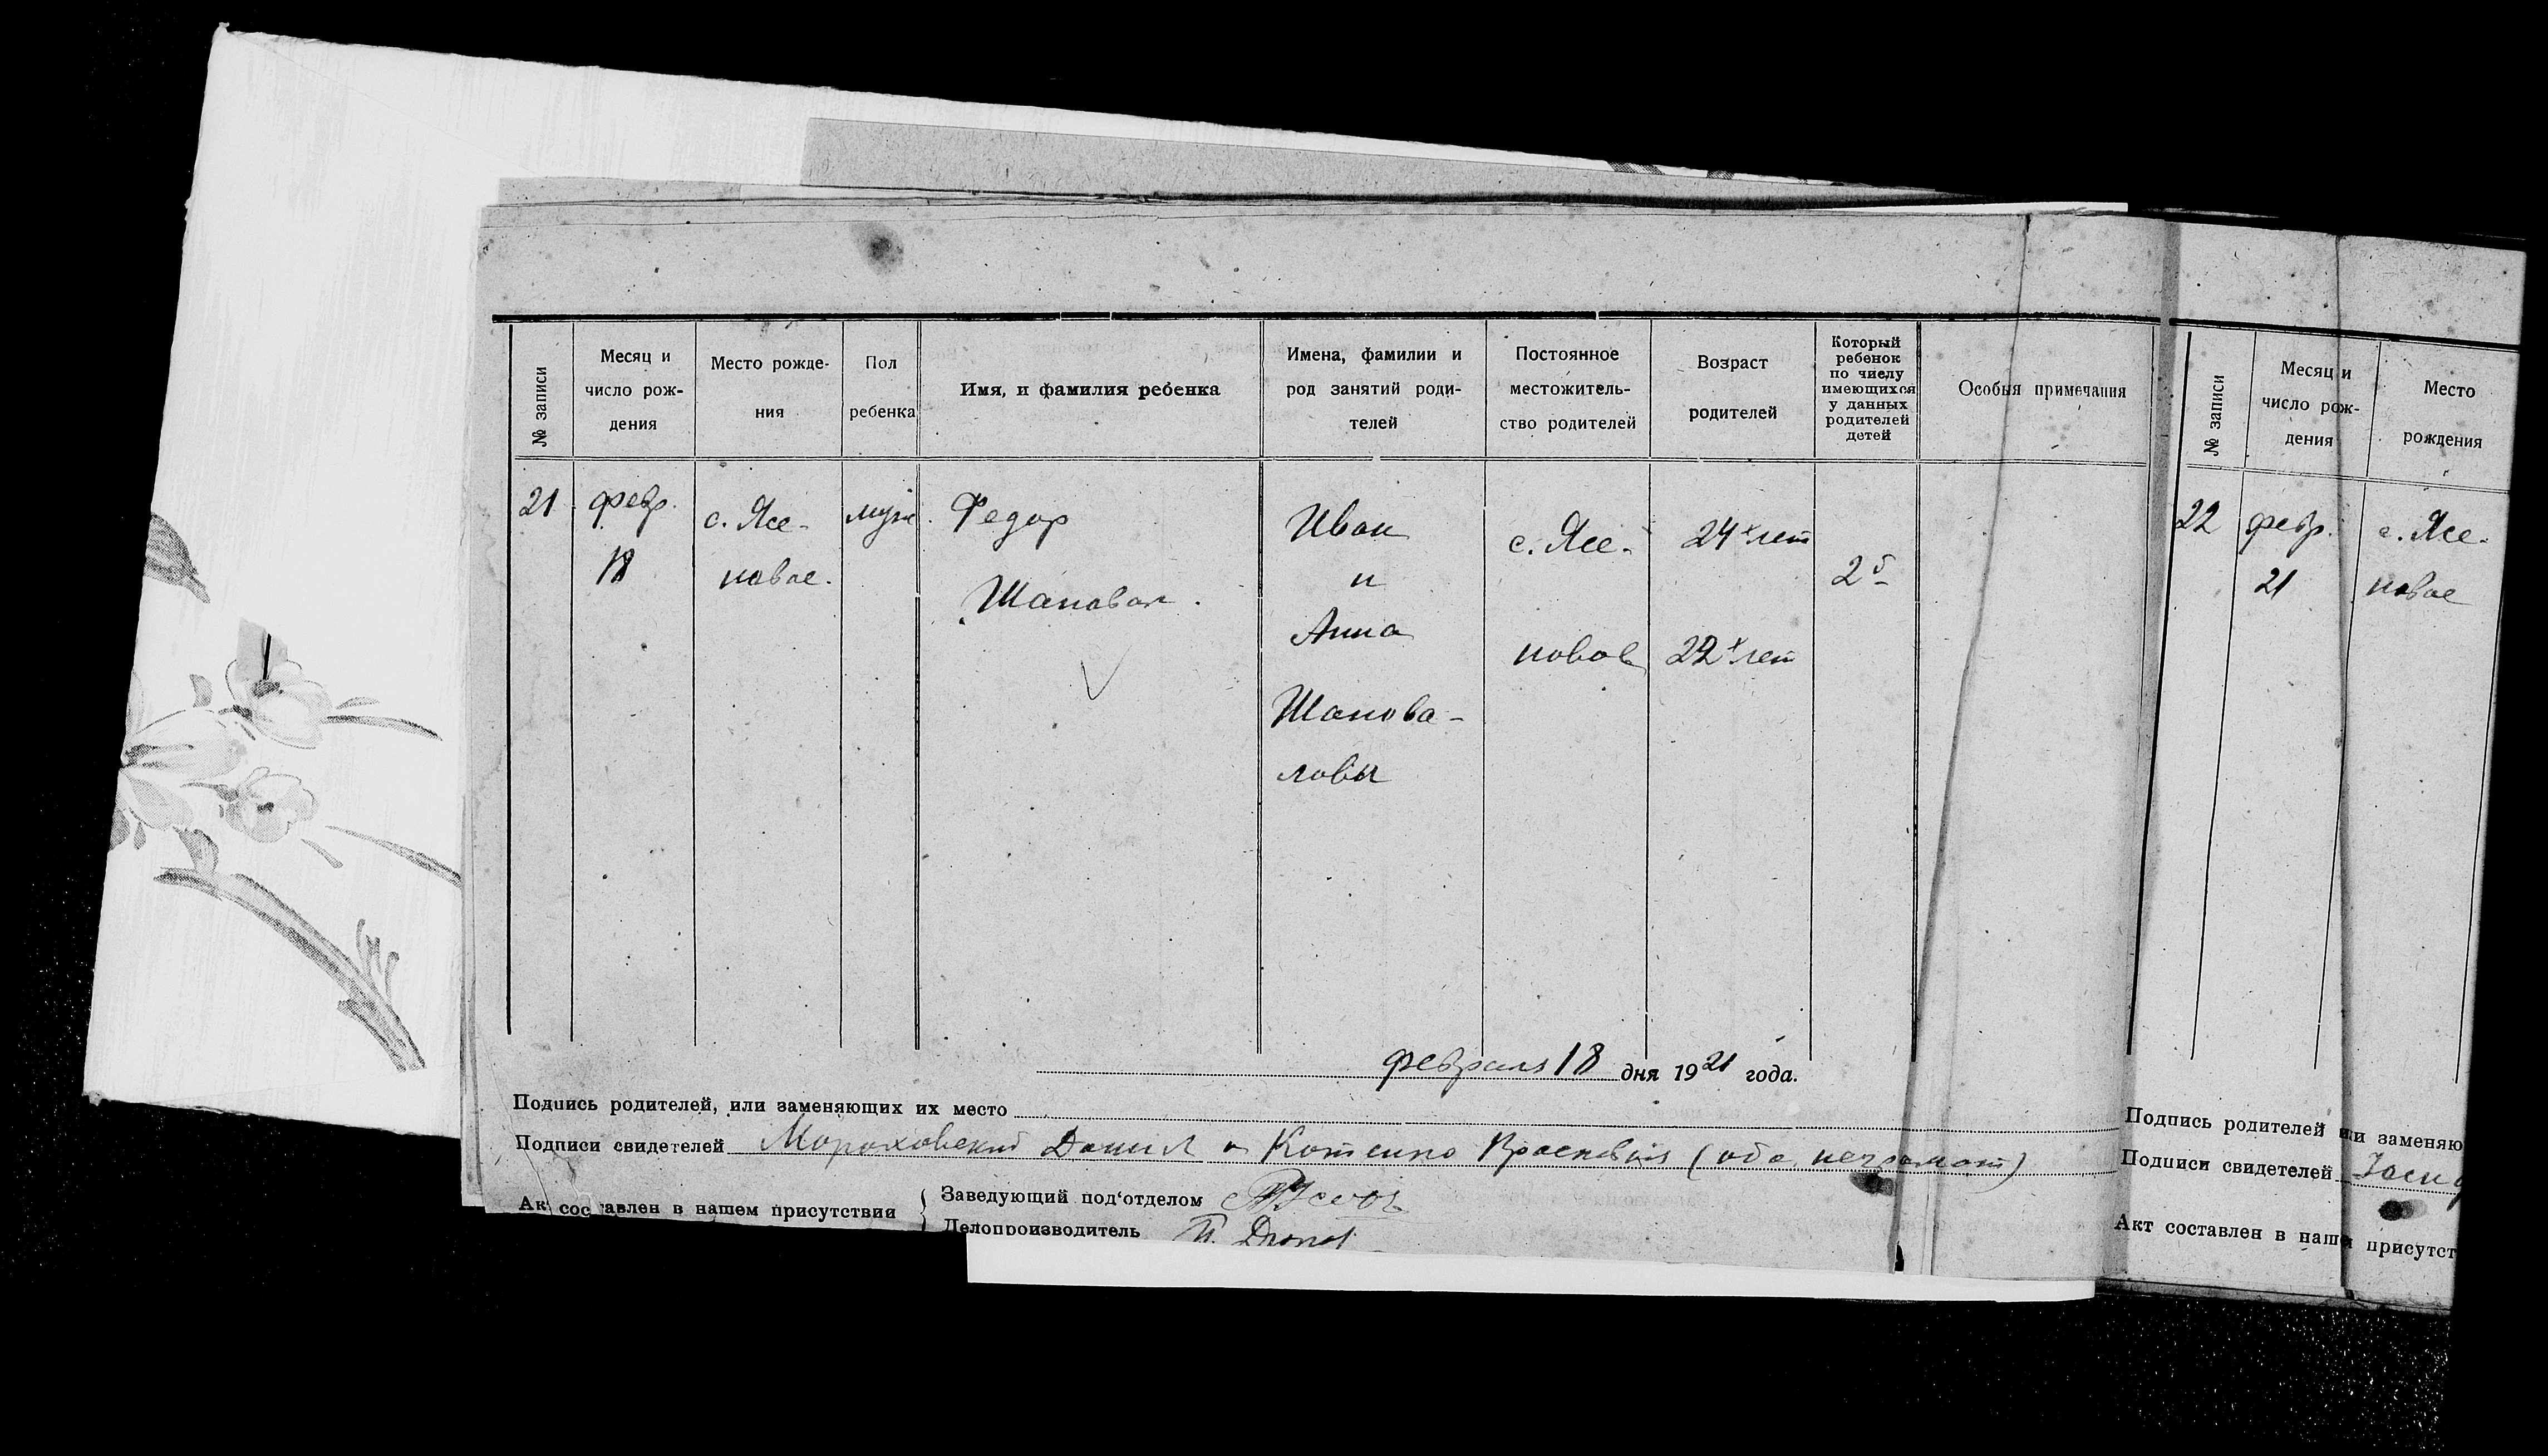 № записи
Месяц и
число рож-
дения
Место рожде-
ния
Пол
ребенка
Имя, и фамилия ребенка
Имена, фамилии и
род занятий роди-
телей
Постоянное
местожитель-
ство родителей
Возраст
родителей
Который
ребенок
по числу
имеющихся
у данных
родителей
детей
Особыя примечания
21
февр.
18
с. Ясе-
новое.
муж.
Федор
Шаповал.
Иван
и
Анна
Шапова-
ловы
с. Ясе-
новое
24х лет
22х лет
2й
февраля 18 дня 1921 года.
Подпись родителей, или заменяющих их место
Подписи свидетелей Мороховский Данил и Котенко (оба неграмот)
Ак составлен в нашем присутствии
Заведующий под'отделом
Делопроизводитель П.
№ записи
Месяц и
число рож-
дения
Место
рождения
22
февр.
21
с. Ясе-
новое
Подпись родителей или заменяю
Подписи свидетелей
Акт составлен в нашем присутст